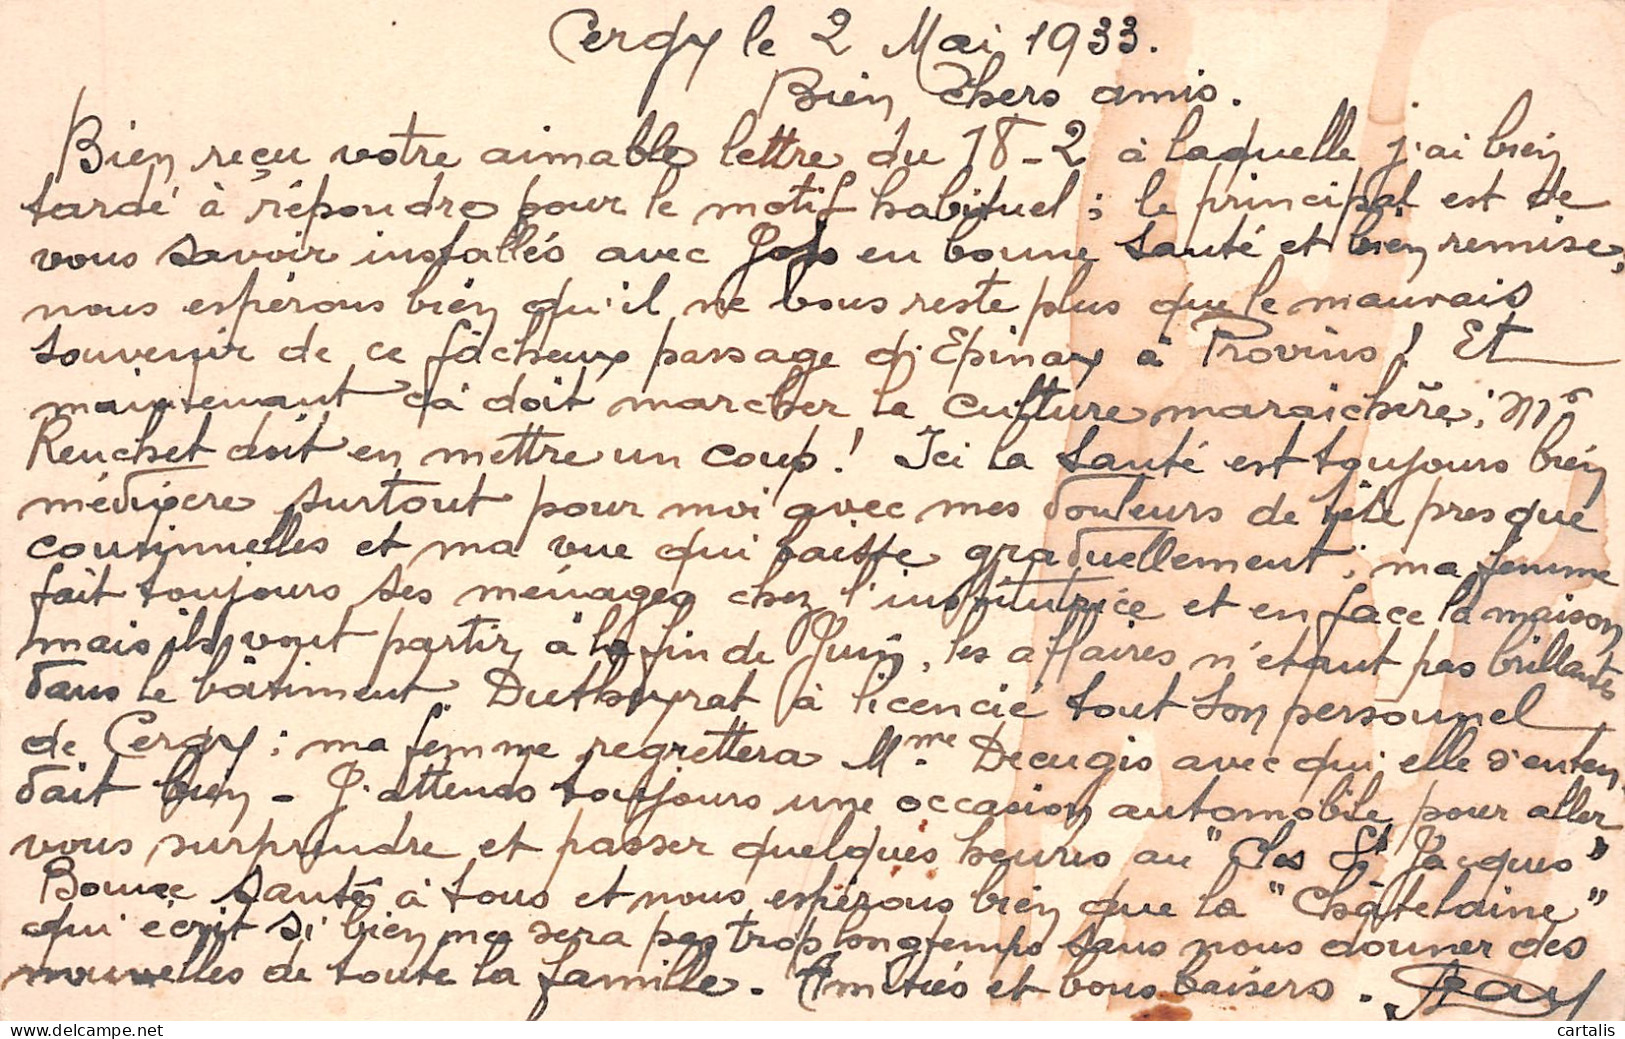 Cergy le 2 Mai 1933.
Bien chers amis.
Bien reçu votre aimable lettre du 18-2 à laquelle j'ai bien
tardé à répondre pour le motif habituel ; le principal est de
vous savoir installés avec en bonne santé et bien remise,
nous espérons bien qu'il ne vous reste plus que le mauvais
souvenir de ce fâcheux passage d'Epinay à Provins ! Et
maintenant çà doit marcher la culture maraichère ; Mr
Reuchet doit en mettre un coup ! Ici la santé est toujours bien
médiocre surtout pour moi avec mes douleurs de tête presque
continuelles et ma vue qui baisse graduellement ; ma femme
fait toujours ses ménages chez l'institutrice et en face la maison
mais ils vont partir à la fin de Juin, les affaires n'étant pas brillantes
dans le bâtiment. à licencié tout son personnel
de Cergy ; ma femme regrettera Mme Decugis avec qui elle s'enten
dait bien - J'attends toujours une occasion automobile pour aller
vous surprendre et passer quelques heures au "Clos St Jacques"
Bonne santé à tous et nous espérons bien que la "Châtelaine"
qui écrit si bien ne sera pas trop longtemps sans nous donner des
nouvelles de toute la famille. Amitiés et bons baisers.
cartalis